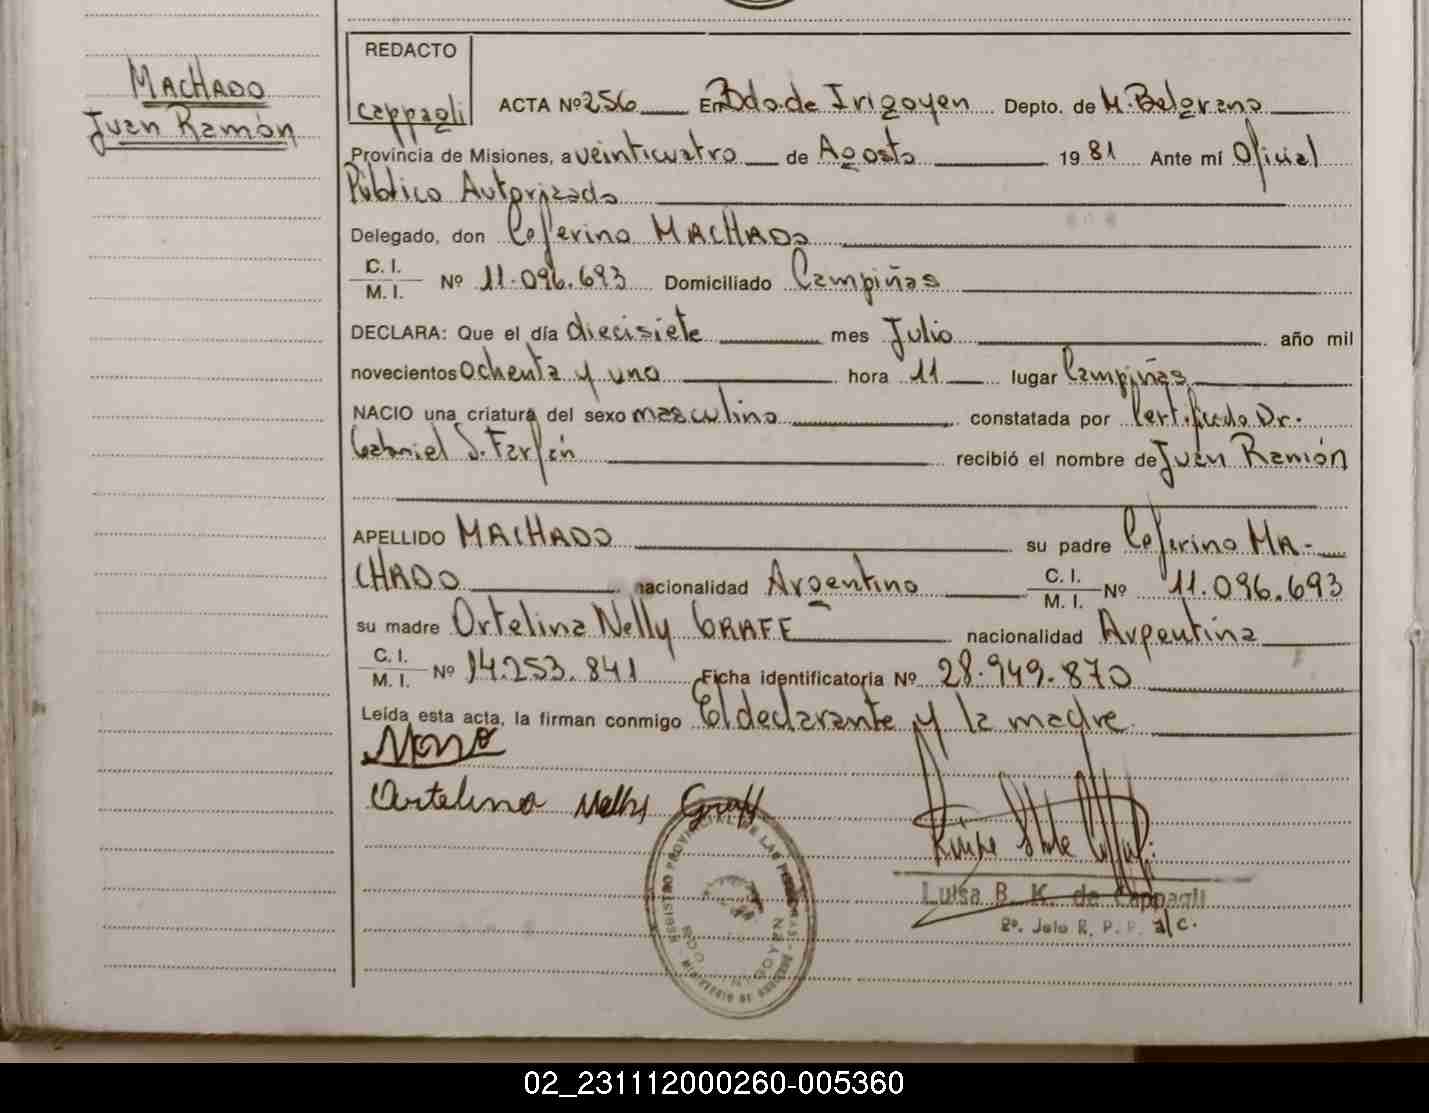 MACHADO
Juan Ramón
REDACTO
Cappagli
ACTA Nº 256 En Bdo. de Irigoyen Depto. de M. Belgrano
Provincia de Misiones, a veinticuatro de Agosto 19 81 Ante mí Oficial
Público Autorizado
Delegado, don Ceferino MACHADO
C. I.
M. I. Nº 11.096.693 Domiciliado Campiñas
DECLARA: Que el día diecisiete mes Julio año mil
novecientos ochenta y uno hora 11 lugar Campiñas
NACIO una criatura del sexo masculino constatada por Certificado Dr.
Gabriel S. Farfán recibió el nombre de Juan Ramón
APELLIDO MACHADO su padre Ceferino MA-
CHADO nacionalidad Argentino C. I.
M. I. Nº 11.096.693
su madre Ortelina Nelly GRAFE nacionalidad Argentina
C. I.
M. I. Nº 14.253.841 Ficha identificatoria Nº 28.949.870
Leída esta acta, la firman conmigo El declarante y la madre.
Ortelina Nelly Graff
REGISTRO PROVINCIAL DE LAS PERSONAS
Luisa B. K. de Cappagli
2º. Jefe R. P. P. a/c.
02_231112000260-005360